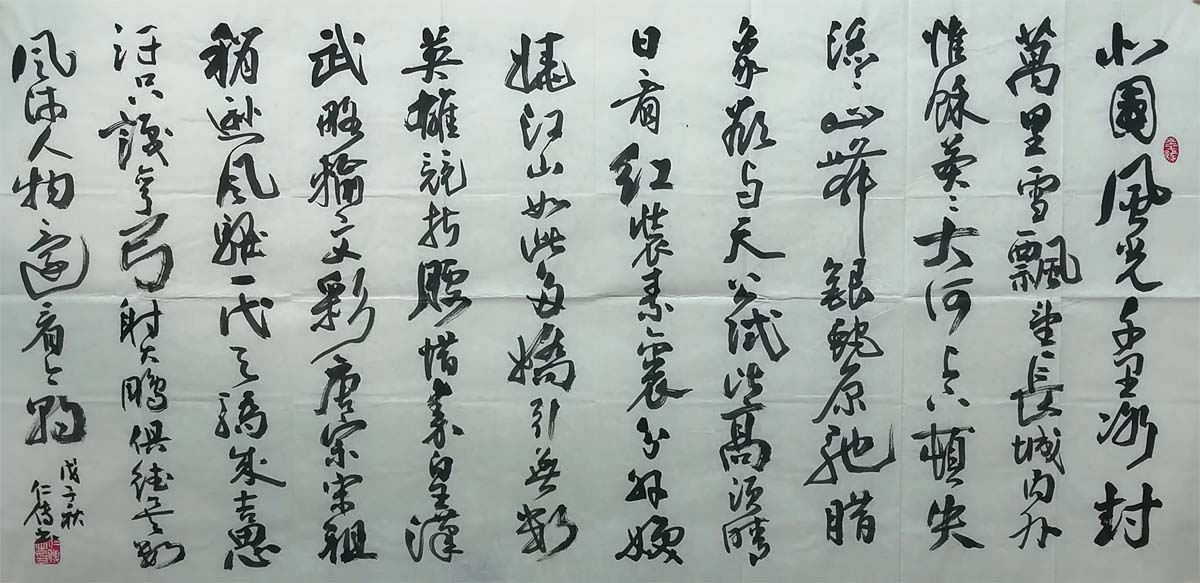 北國風光千里冰封
萬里雪飄望長城內外
惟餘莽〻大河上下頓失
滔〻山舞銀蛇原馳腊
象欲与天公試比高須晴
日看紅裝素裹分外妖
嬈江山如此多嬌引無數
英雄競折腰惜秦皇漢
武略輸文彩唐宗宋祖
稍遜風騷一代天驕成吉思
汗只識彎弓射大鵰俱往矣數
風流人物還看今朝
戊子秋
仁傳書